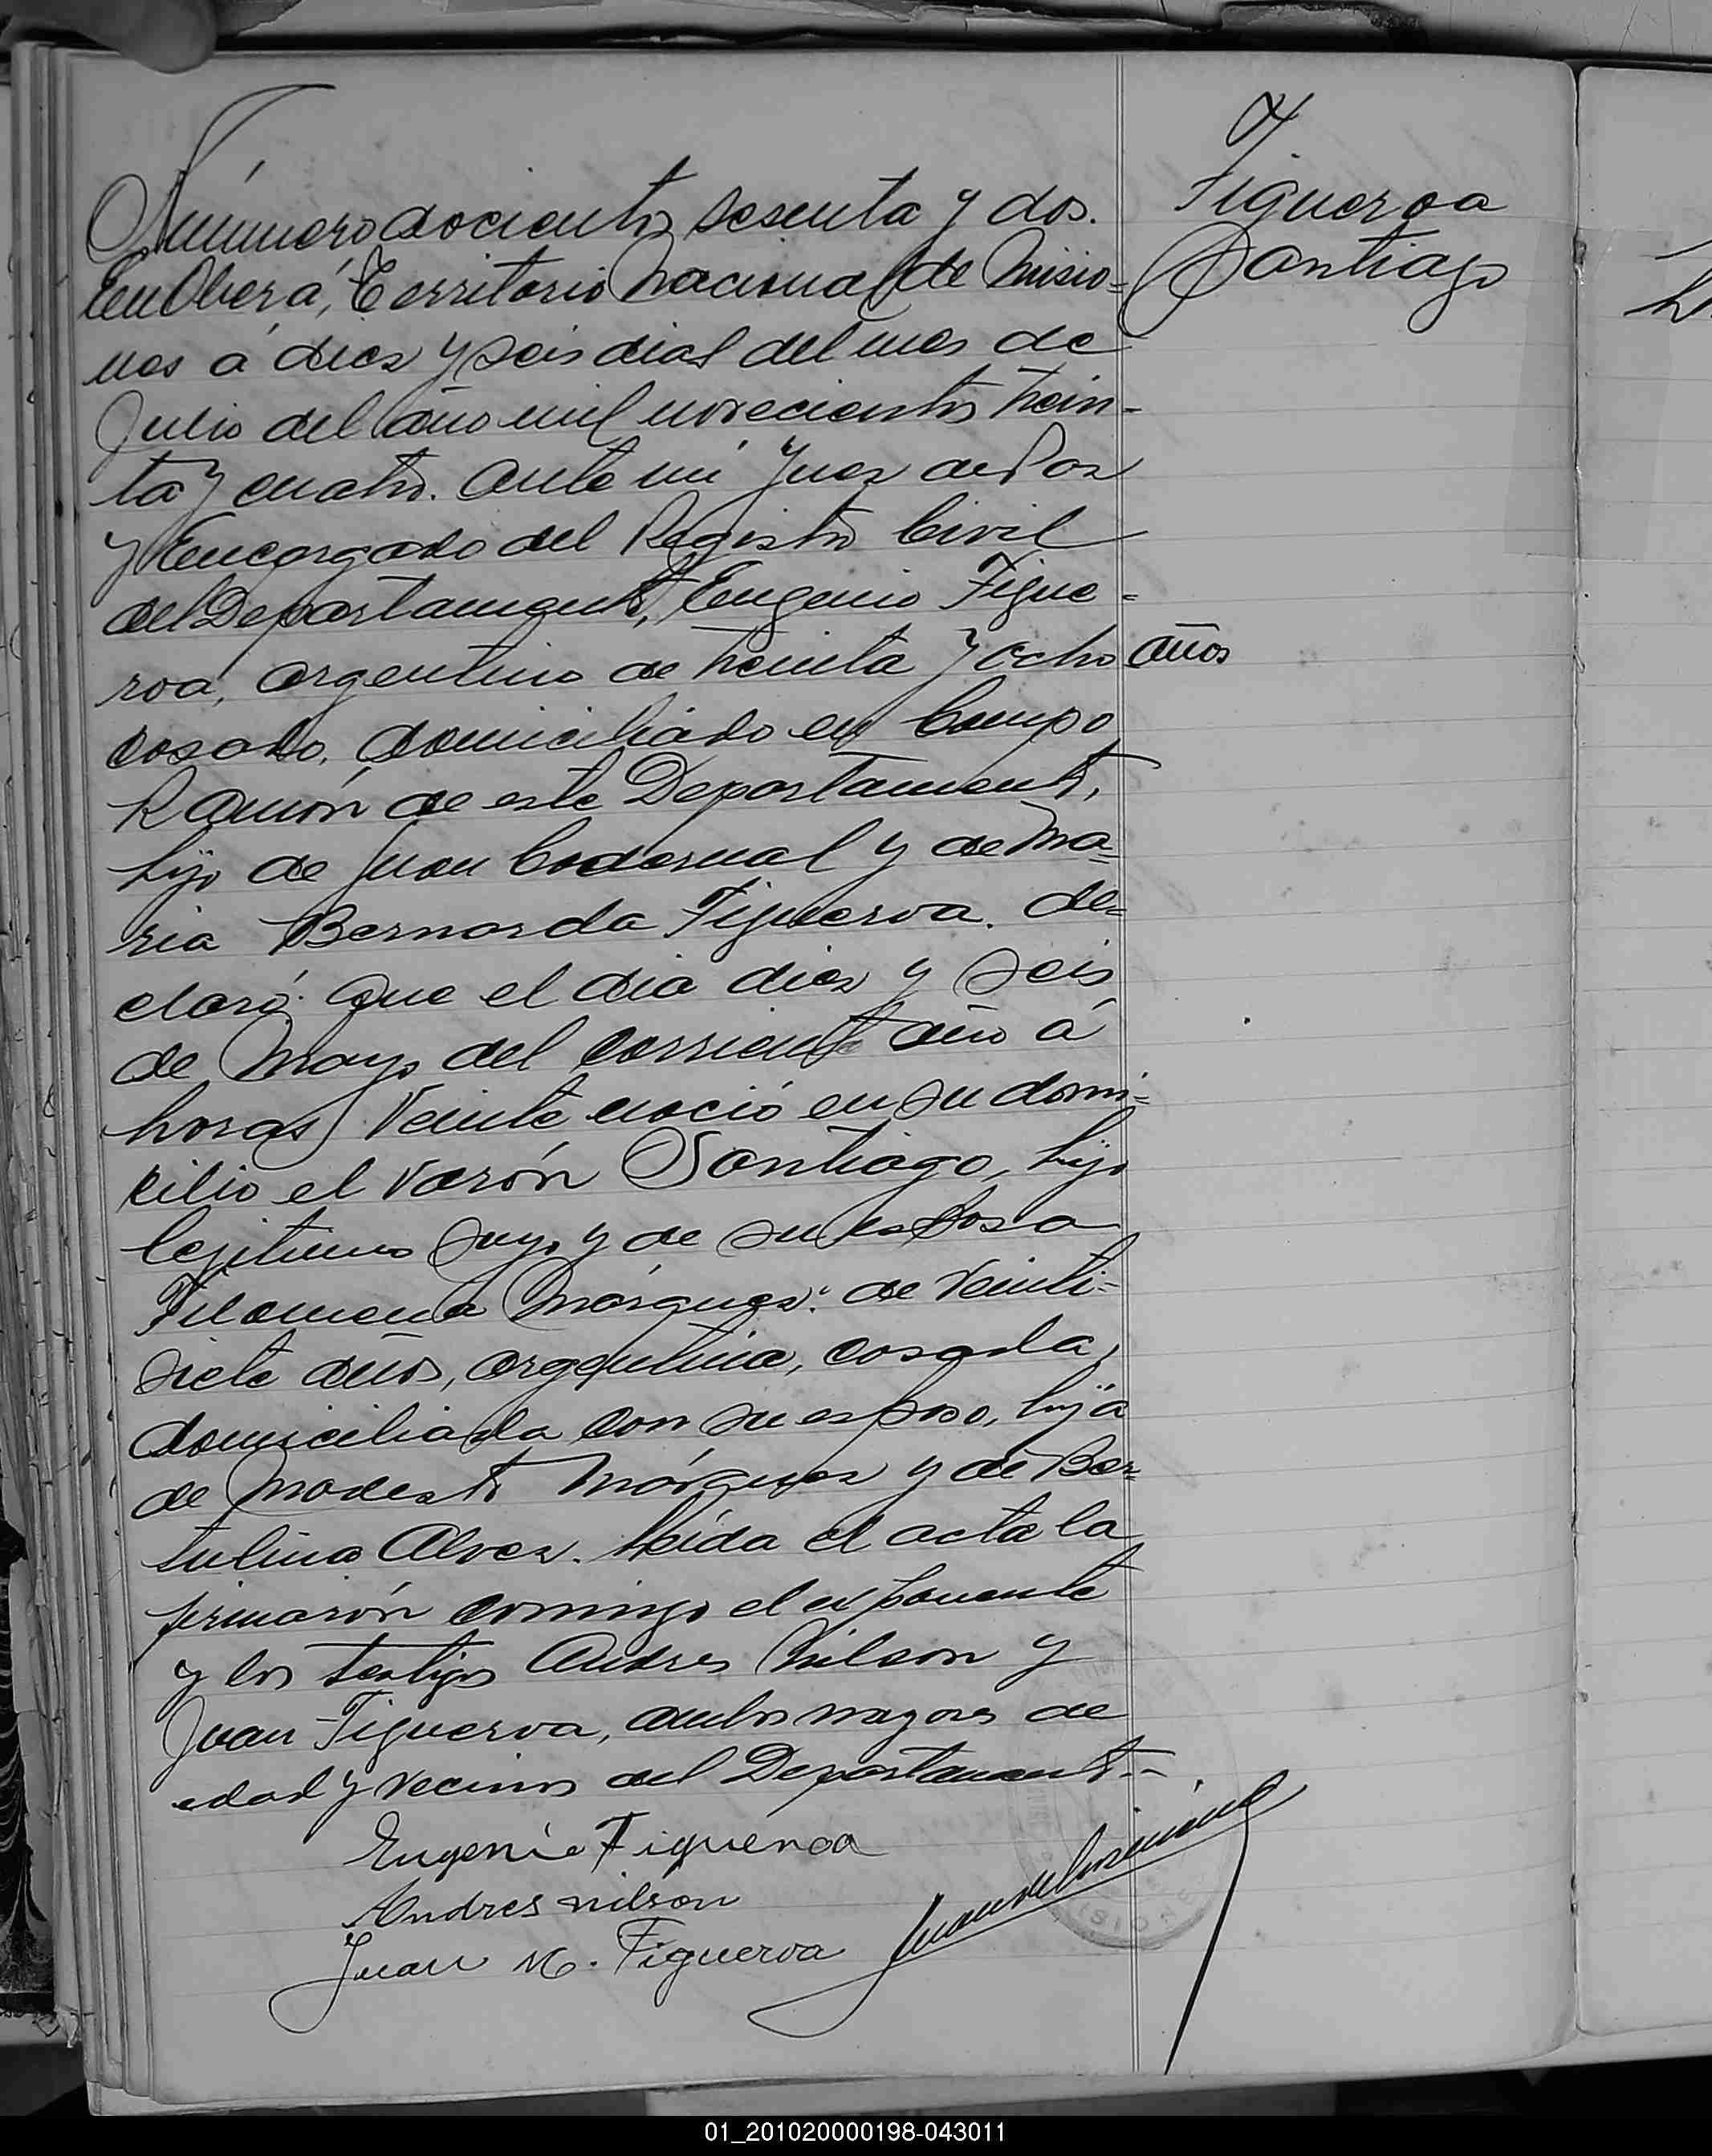 Número docientos sesenta y dos.
En Oberá, Territorio Nacional de Misio=
nes á diez y seis dias del mes de
Julio del año mil novecientos trein-
ta y cuatro. Ante mi Juez de Paz
y Encargado del Registro Civil
del Departamento, Eugenio Figue=
roa, argentino de treinta y ocho años
casado, domiciliado en Campo
Ramón de este Departamento,
hijo de Juan y de Ma=
ria Bernarda Figueroa. de=
claró: Que el dia diez y seis
de Mayo del corriente año á
horas veinte nació en su domi=
cilio el varón Santiago, hijo
legitimo suyo y de su esposa
Filomena Márquez: de veinti=
siete años, argentina, casada,
domiciliada con su esposo, hija
de Modesto Márquez y de Ber=
tulina Alvez. Leida el acta la
firmarón conmigo el exponente
y los testigos Andres Nilson y
Juan Figueroa, ambos mayores de
edad y vecinos del Departamento.-
Eugenio Figueroa
Andres nilson
Juan M. Figueroa
Figueroa
Santiago
01_201020000198-043011